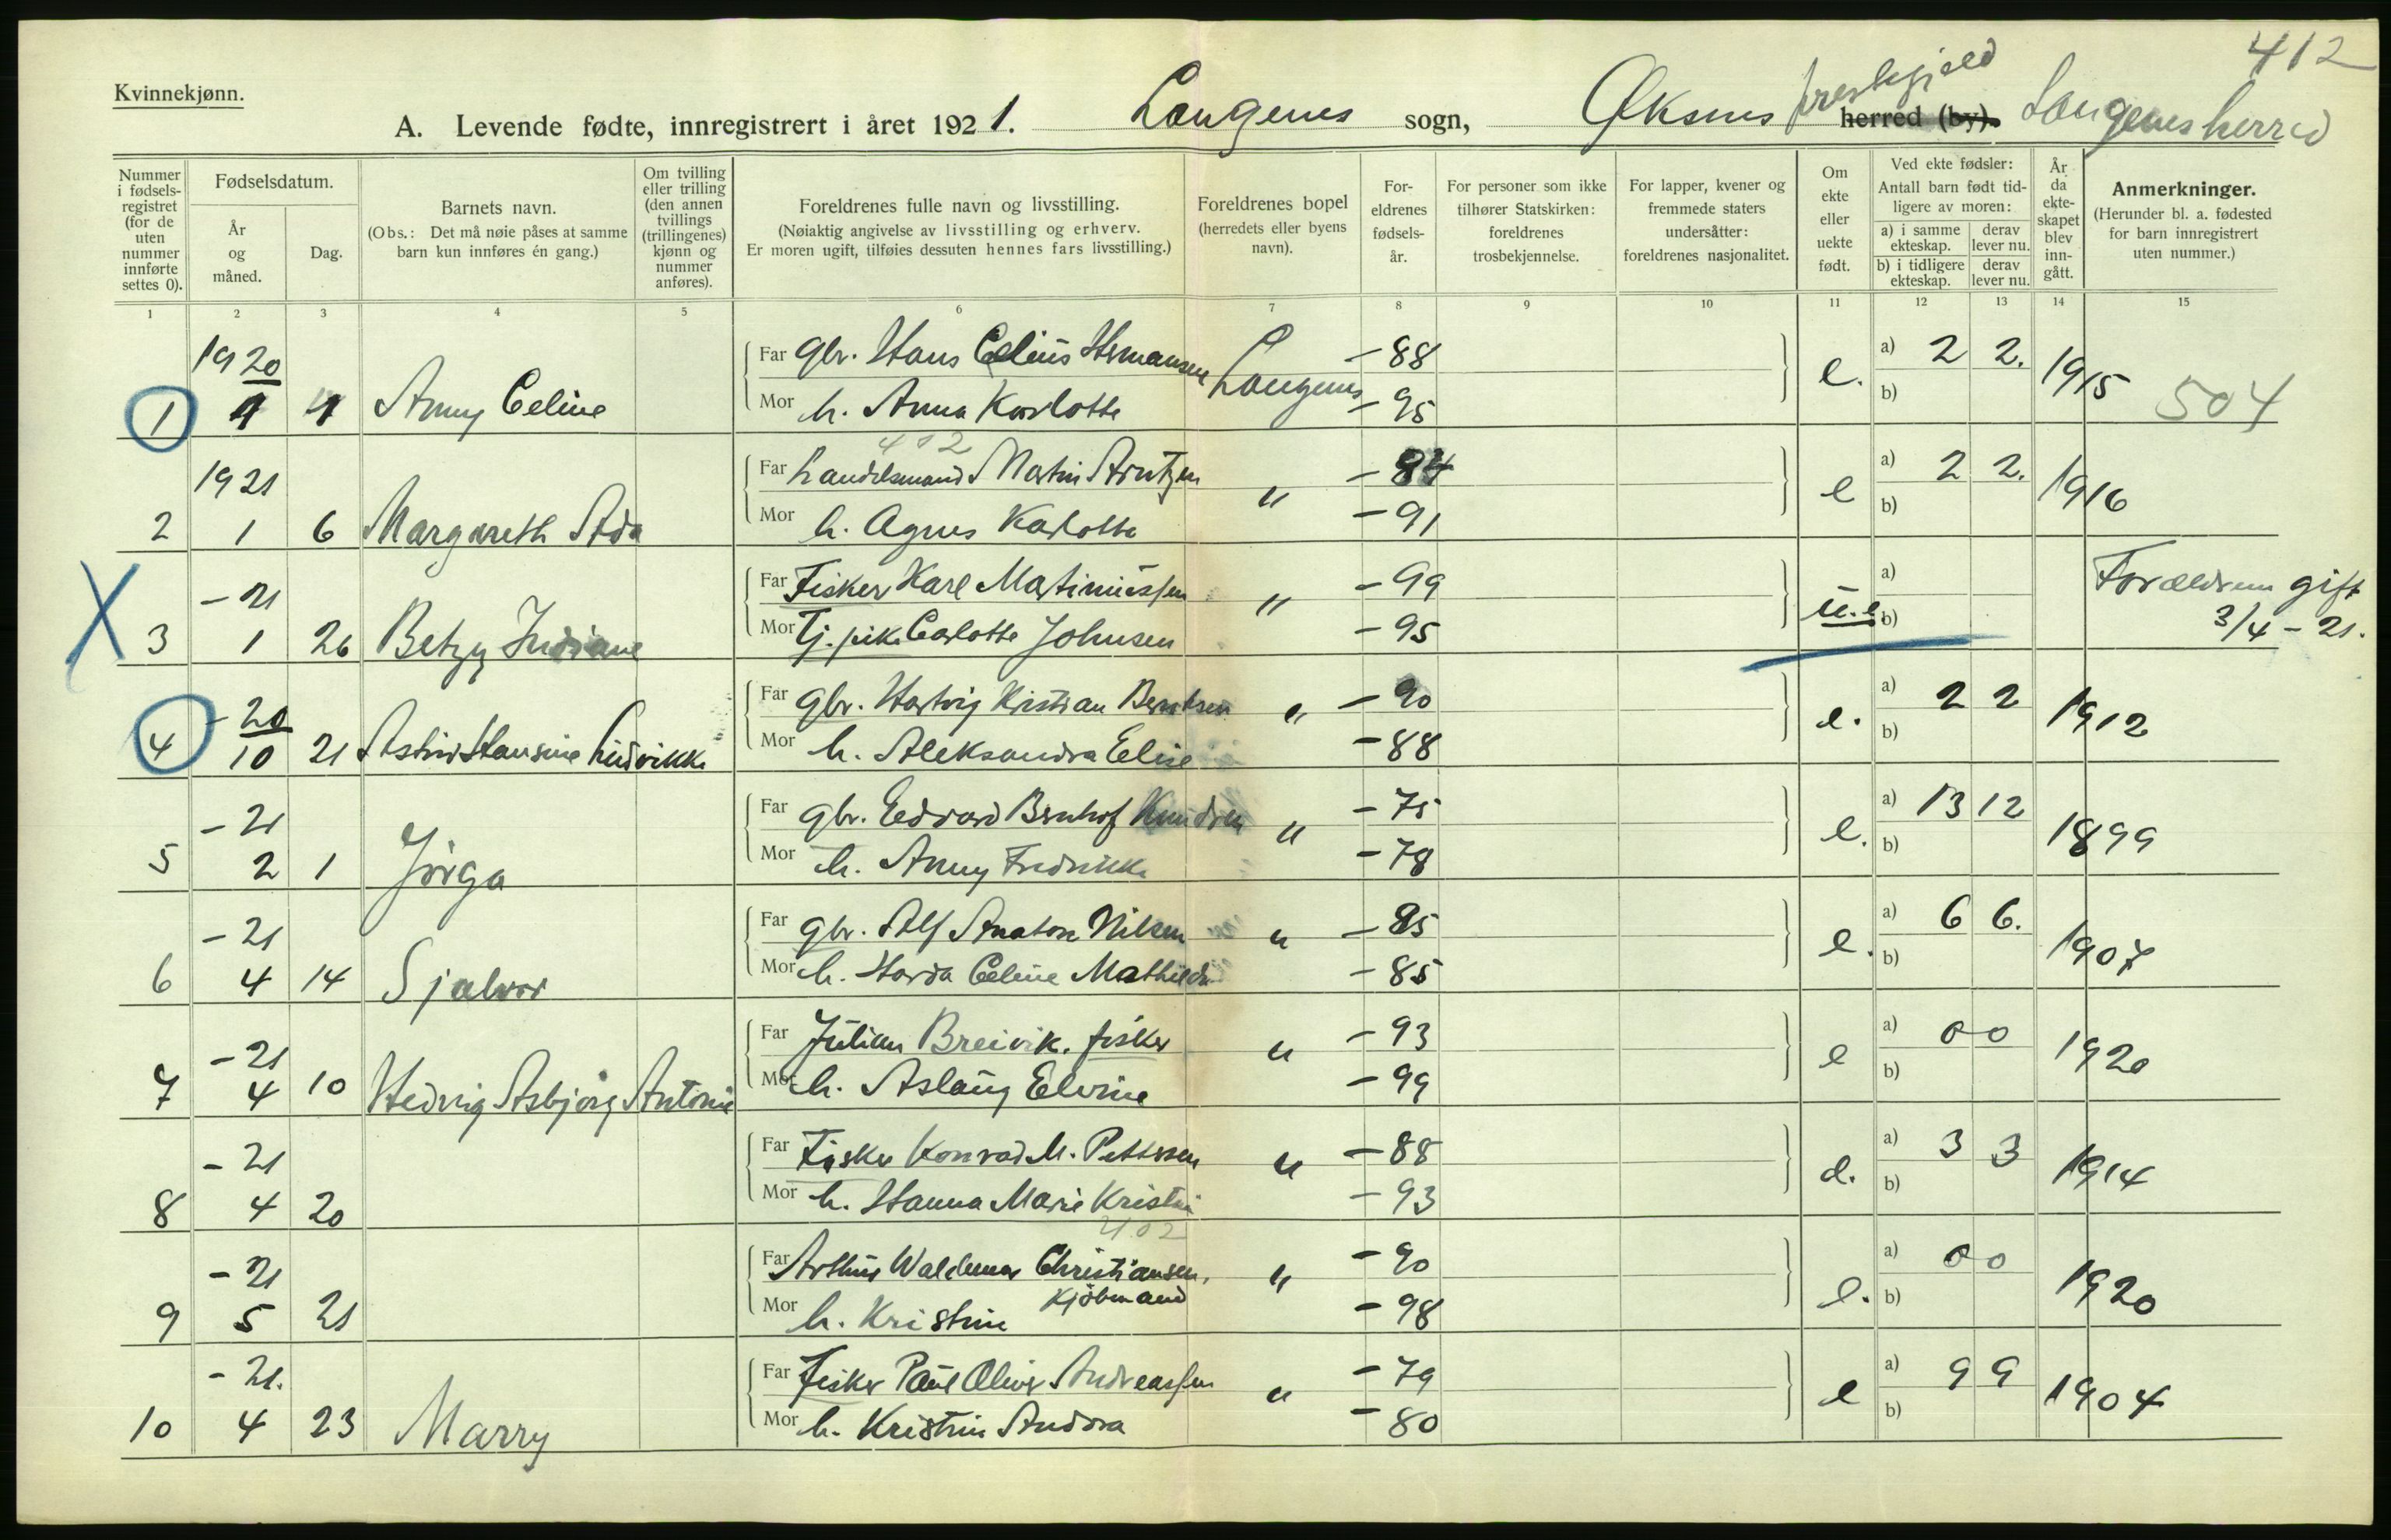 412
Kvinnekjønn.
A. Levende fødte, innregistrert i året 1921. Langenes sogn, Øksnes prestegjeld herred (by). Langenes herred
Nummer i fødsels-registret (for de uten nummer innførte settes 0).
Fødselsdatum.
År og måned.
Dag.
Barnets navn.
(Obs.: Det må nøie påses at samme barn kun innføres én gang.)
Om tvilling eller trilling (den annen tvillings (trillingenes) kjønn og nummer anføres).
Foreldrenes fulle navn og livsstilling.
(Nøiaktig angivelse av livsstilling og erhverv.
Er moren ugift, tilføies dessuten hennes fars livsstilling.)
Foreldrenes bopel (herredets eller byens navn).
For-eldrenes fødsels-år.
For personer som ikke tilhører Statskirken: foreldrenes trosbekjennelse.
For lapper, kvener og fremmede staters undersåtter: foreldrenes nasjonalitet.
Om ekte eller uekte født.
Ved ekte fødsler:
Antall barn født tid-ligere av moren:
a) i samme ekteskap. derav lever nu.
b) i tidligere ekteskap. derav lever nu.
År da ekte-skapet blev inn-gått.
Anmerkninger.
(Herunder bl. a. fødested for barn innregistrert uten nummer.)
1 2 3 4 5 6 7 8 9 10 11 12 13 14 15
1920
Far gbr. Hans Celius Hermansen Langenes -88 a) 2 2.
1 4 Anny Celine e. 1915 504
Mor h. Anna Karlotte -95 b)
402
1921 Far handelsmand Martin Arntzen " -84 a) 2 2.
2 1 6 Margareth Ada e 1916
Mor h. Agnes Karlotte -91 b)
-21 Far Fisker Karl Martinussen " -99 a) Forældrene gift
X 3 1 26 Betzy Indiane u.e. 3/4-21.
Mor Tj. pike Carlotte Johnsen -95 b)
-20 Far gbr. Hartvig Kristian Berntsen " -90 a) 2 2
4 10 21 Astrid Hansine Ludvikke e. 1912
Mor h. Aleksandra Elise -88 b)
-21 Far gbr. Edvard Bernhof Knudsen " -75 a) 13 12
5 2 1 Jörga e. 1899
Mor h. Anny Fredrikke -78 b)
-21 Far gbr. Alf Anaton Nilsen " -85 a) 6 6.
6 4 14 Sjalvor e. 1907
Mor h. Harda Celine Mathilde -85 b)
-21 Far Julian Breivik. fisker " -93 a) 0 0
7 4 10 Hedvig Asbjörg Antonie e 1920
Mor h. Aslaug Elvine -99 b)
-21 Far Fisker Konrad M. Pettersen " -88 a) 3 3
8 4 20 e. 1914
Mor h. Hanna Marie Kristin -93 b)
402
-21 Far Arthur Waldemar Christiansen, " -90 a) 0 0
Kjöbmand
9 5 21 e. 1920
Mor h. Kristine -98 b)
-21. Far Fisker Paul Oliver Andreassen " -79 a) 9 9
10 4 23 Marry e 1904
Mor h. Kristine Andora -80 b)